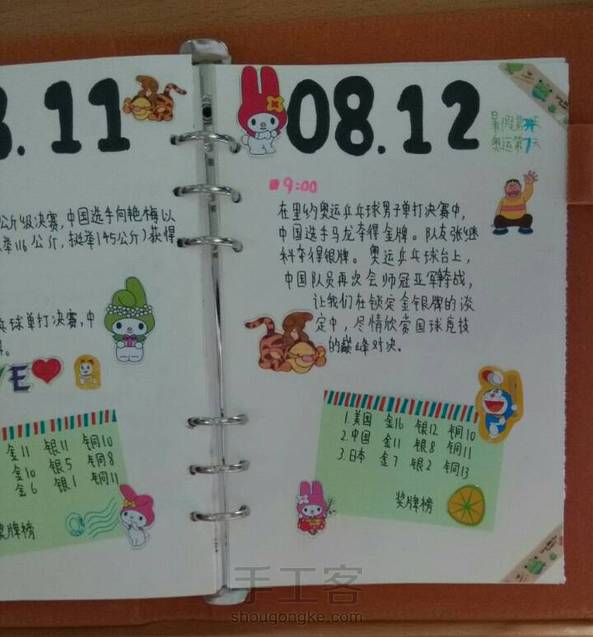 8.11
公斤级决赛，中国选手向艳梅以
举116公斤，挺举145公斤）获得
乒乓球单打决赛，中
VE
金11 银11 铜10
金10 银5 铜8
金6 银1 铜11
奖牌榜
08.12
暑假第
奥运第7天
9:00
在里约奥运乒乓球男子单打决赛中，
中国选手马龙夺得金牌。队友张继
科夺得银牌。奥运乒乓球台上，
中国队员再次会师冠亚军大战，
让我们在锁定金银牌的淡
定中，尽情欣赏国球竞技
的巅峰对决。
1.美国 金16 银12 铜10
2.中国 金11 银8 铜11
3.日本 金7 银2 铜13
奖牌榜
手工客
shougongke.com